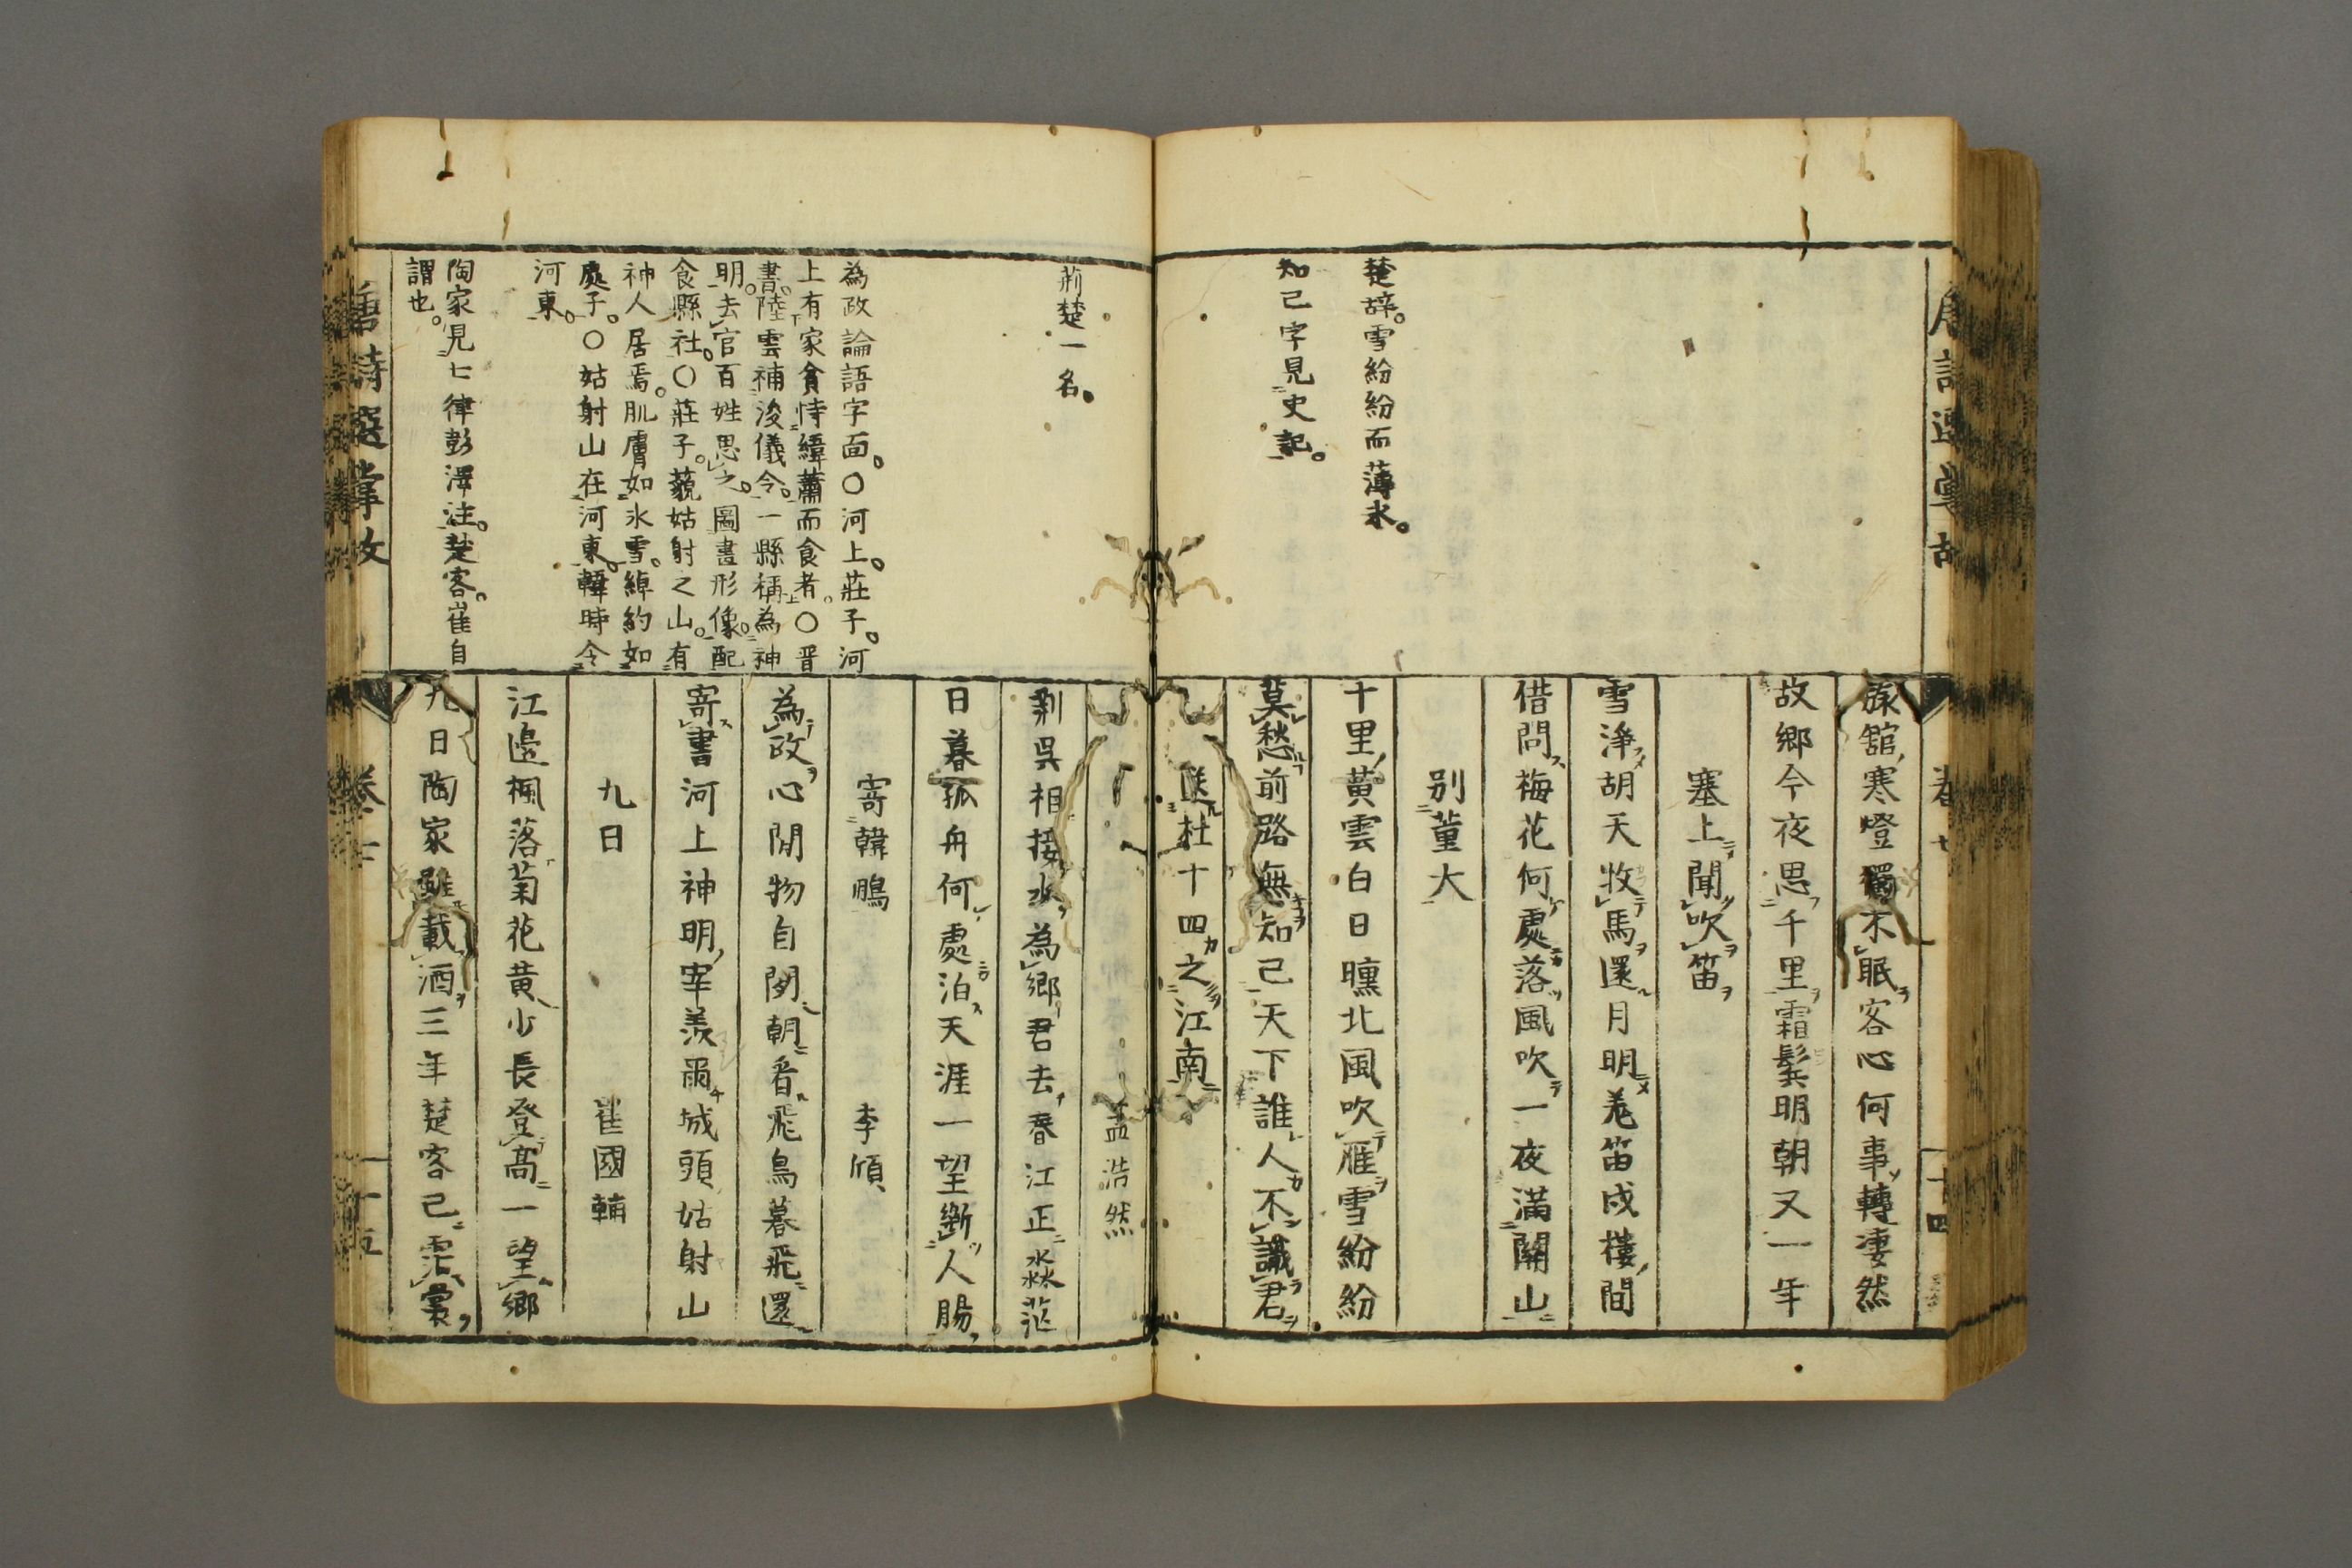 楚辞。雪紛紛而薄木。
知己字見史記。
旅館寒燈獨不眠客心何事轉凄然
故鄉今夜思千里霜鬂明朝又一年
塞上聞吹笛
雪淨胡天牧馬還月明羌笛戍樓間
借問梅花何處落風吹一夜滿關山
別董大
十里黄雲白日曛北風吹雁雪紛紛
莫愁前路無知己天下誰人不識君
送杜十四之江南
卷七
十四
荊楚一名。
為政論語字面。〇河上。莊子。河
上有家貧恃緯蕭而食者。〇晋
書。陸雲補浚儀令。一縣稱為神
明。去官百姓思之。圖畫形像。配
食縣社。〇莊子。藐姑射之山。有
神人居焉。肌膚如氷雪。綽約如
處子。〇姑射山在河東。韓時令
河東。
陶家見七律彭澤注。楚客。崔自
謂也。
孟浩然
荆吳相接水為鄉君去春江正淼茫
日暮孤舟何處泊天涯一望斷人腸
寄韓鵬 李頎
為政心閒物自閑朝看飛鳥暮飛還
寄書河上神明宰羨爾城頭姑射山
九日 崔國輔
江邊楓落菊花黄少長登高一望鄉
九日陶家雖載酒三年楚客已霑裳
唐詩選掌故
卷七
十五